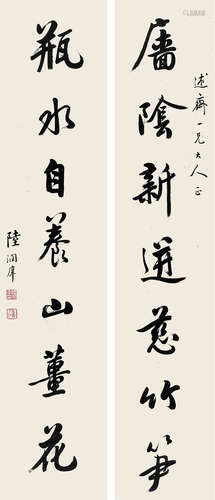 述齋一兄大人正
牆陰新迸慈竹筍
瓶水自養山薑花
陸潤庠